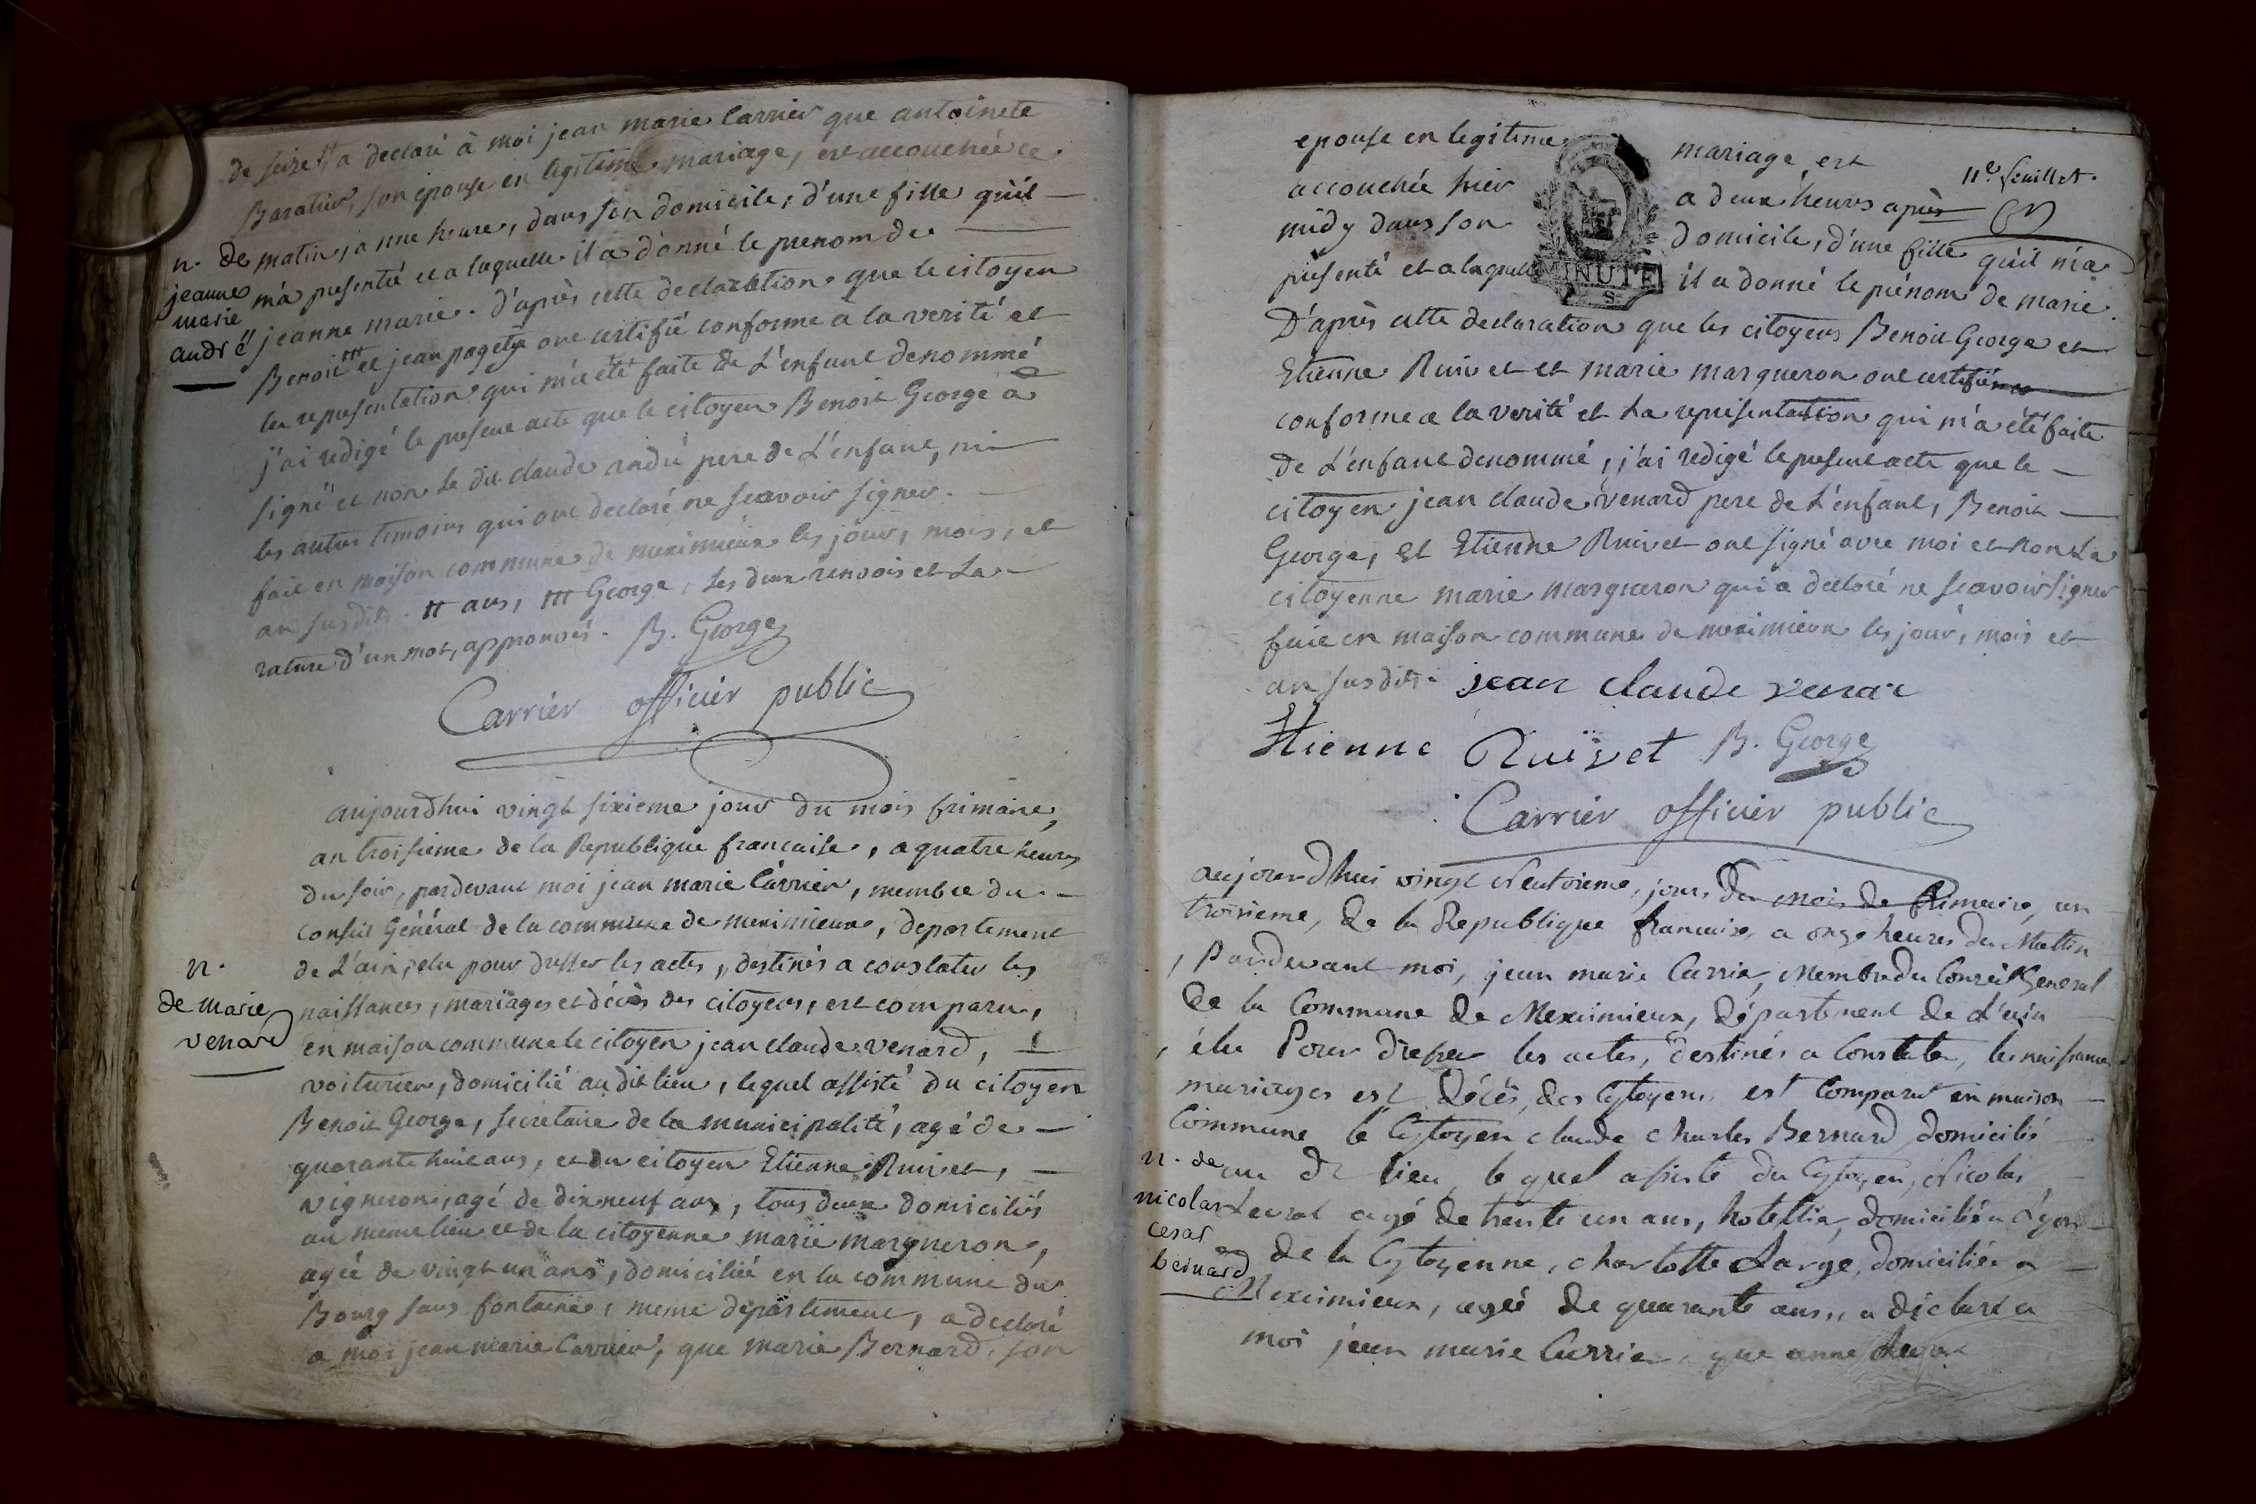 de seize tt a declaré à moi jean marie Carrier que antoinete
Baratier, son épouse en legitime mariage, est accouchée ce
matin, a une heure, dans son domicile, d'une fille qu'il
m'a presenté et a laquelle il a donné le prenom de
jeanne marie. D'après cette declaration que le citoyen
Benoit ttt et jean paget ont certifié conforme a la verité et
la representation qui m'a été faite de L'enfant denommé
j'ai redigé le present acte que le citoyen Benoit George a
signé et non le dit claude andré pere de L'enfant, ni
les autres temoins qui ont declaré ne scavoir signer.
fait en maison commune de meximieux les jour, mois, et
an susdits. tt ans, ttt George, les deux renvois et La
rature d'un mot, approuvés. B. George
Carrier officier public
n. de
jeanne
marie
andré
aujourdhui vingt sixieme jour du mois frimaire,
an troisieme de la Republique francaise, a quatre heures
du soir, pardevant moi jean marie Carrier, membre du
conseil Général de la commune de meximieux, departement
de L'ain, elu pour dresser les actes, destinés a constater les
naissances, mariages et décès des citoyens, est comparu,
en maison commune le citoyen jean claude venard,
voiturier, domicilié au dit lieu, lequel assisté du citoyen
Benoit George, secretaire de la municipalité, agé de
quarante huit ans, et du citoyen Etienne Ruivet,
vigneron, agé de dix neuf ans, tous deux domiciliés
au meme lieu et de la citoyenne marie margueron,
agée de vingt un ans, domiciliée en la commune du
Bourg sans fontaine, meme departement, a declaré
a moi jean marie Carrier, que marie Bernard, son
n.
de marie
venard
11e feuillet.
epouse en legitime mariage, est
accouchée hier a deux heures après
midy dans son domicile, d'une fille qu'il m'a
présenté et a laquelle il a donné le prénom de marie.
MINUTE
S
D'après cette declaration que les citoyens Benoit George et
Etienne Ruivet et marie margueron ont certifié
conforme a la verité et La representation qui m'a été faite
de L'enfant denommé, j'ai redigé le present acte que le
citoyen jean claude venard pere de L'enfant, Benoit
George, et Etienne Ruivet ont signé avec moi et non La
citoyenne marie margueron qui a declaré ne scavoir signer
fait en maison commune de meximieux les jour, mois et
an susdits. jean claude venar
Etienne Ruivet B. George
Carrier officier public
aujourdhui vingt neuvieme, jour, du mois de frimaire, an
troisieme, de la Republique francaise, a onze heures du Mattin
, Pardevant moi, jean marie Carrier, Membre du Conseil General
de la Commune de Meximieux, département de L'ain
, élu Pour dresser les actes, destinés a Constater, les naissances
mariages est décés, des Cytoyens est Comparut en maison
Commune le Cytoyen claude charles Bernard domicilié
au dt lieu, le quel assisté du Cytoyen, Nicolas
agé de trente un ans, hotellier, domicilié a Lyon
de la Cytoyenne, charlotte Large, domiciliée a
Meximieux, agée de quarante ans, a déclaré a
moi jean marie Carrier, que anne
n. de
nicolas
cesar
bernard